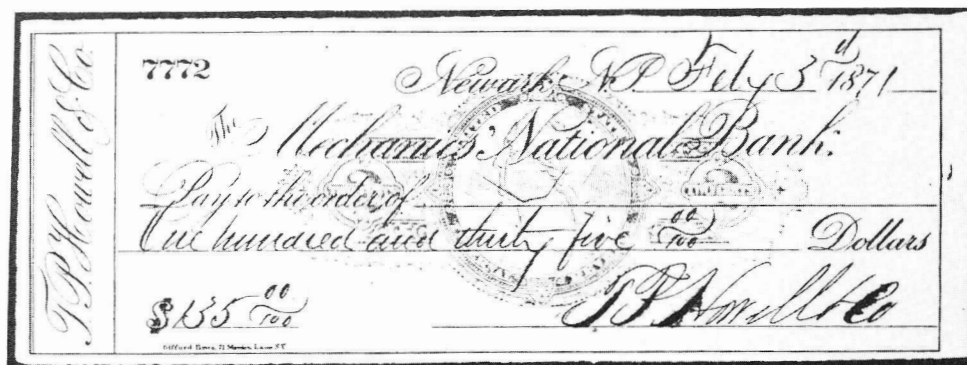 T.P. Howell & Co.
7772
Newark, N.J. Feby 3d 1871
The Mechanics' National Bank.
Pay to the order of
One hundred and thirty five 00/100 Dollars
$135 00/100
T.P. Howell & Co